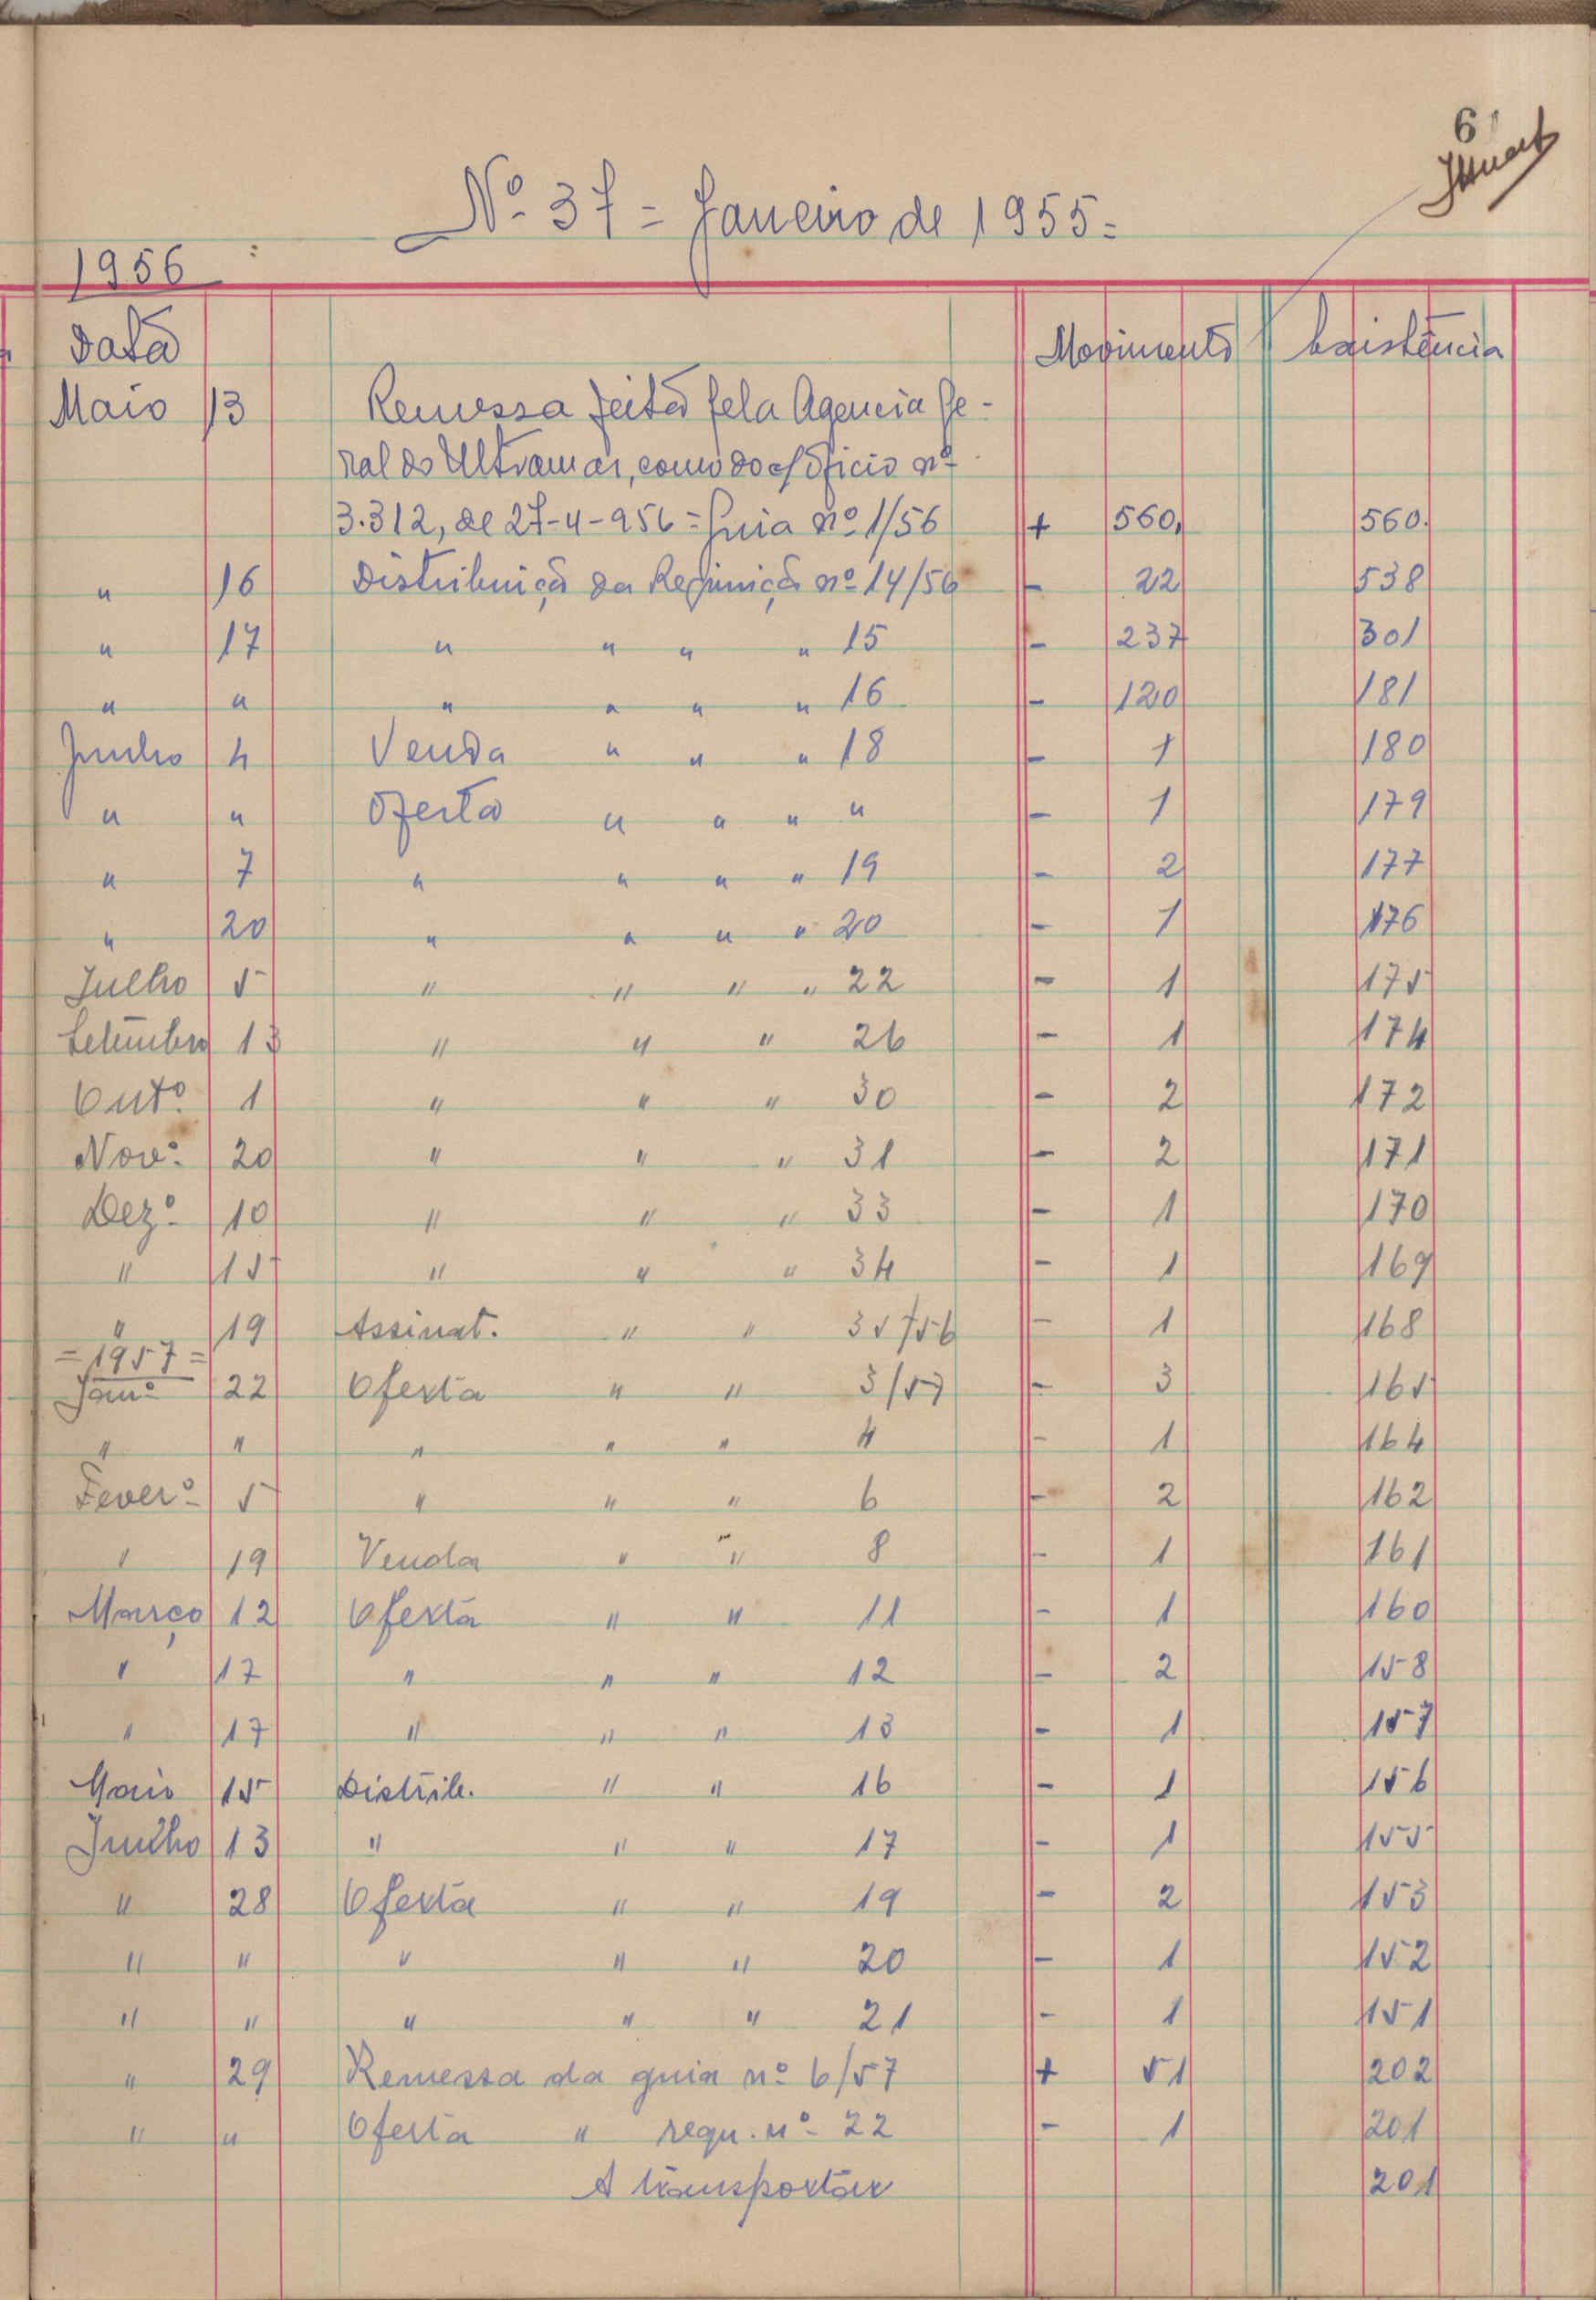 6
Nº 37 = Janeiro de 1955 =
1956
Data Movimento Existência
Maio 13 Remessa feita pela Agencia Ge-
ral do Ultramar, como do of/ofício nº
3.312, de 27-4-956 = Guia nº 1/56 + 560, 560.
" 16 Distribuiçã da Requisiçã nº 14/56 - 22 538
" 17 " " " " 15 - 237 301
" " " " " " 16 - 120 181
Junho 4 Venda " " " 18 - 1 180
" " Oferta " " " " - 1 179
" 7 " " " " 19 - 2 177
" 20 " " " " 20 - 1 176
Julho 5 " " " " 22 - 1 175
Setembro 13 " " " 26 - 1 174
Outº 1 " " " 30 - 2 172
Novº 20 " " " 31 - 2 171
Dezº 10 " " " 33 - 1 170
" 15 " " " 34 - 1 169
" 19 Assinat. " " 35/56 - 1 168
= 1957 =
Janº 22 Oferta " " 3/57 - 3 165
" " " " " 4 - 1 164
Feverº 5 " " " 6 - 2 162
" 19 Venda " " 8 - 1 161
Março 12 Oferta " " 11 - 1 160
" 17 " " " 12 - 2 158
" 17 " " " 13 - 1 157
Maio 15 Distrib. " " 16 - 1 156
Junho 13 " " " 17 - 1 155
" 28 Oferta " " 19 - 2 153
" " " " " 20 - 1 152
" " " " " 21 - 1 151
" 29 Remessa da guia nº 6/57 + 51 202
" " Oferta " requ. nº 22 - 1 201
A transportar 201